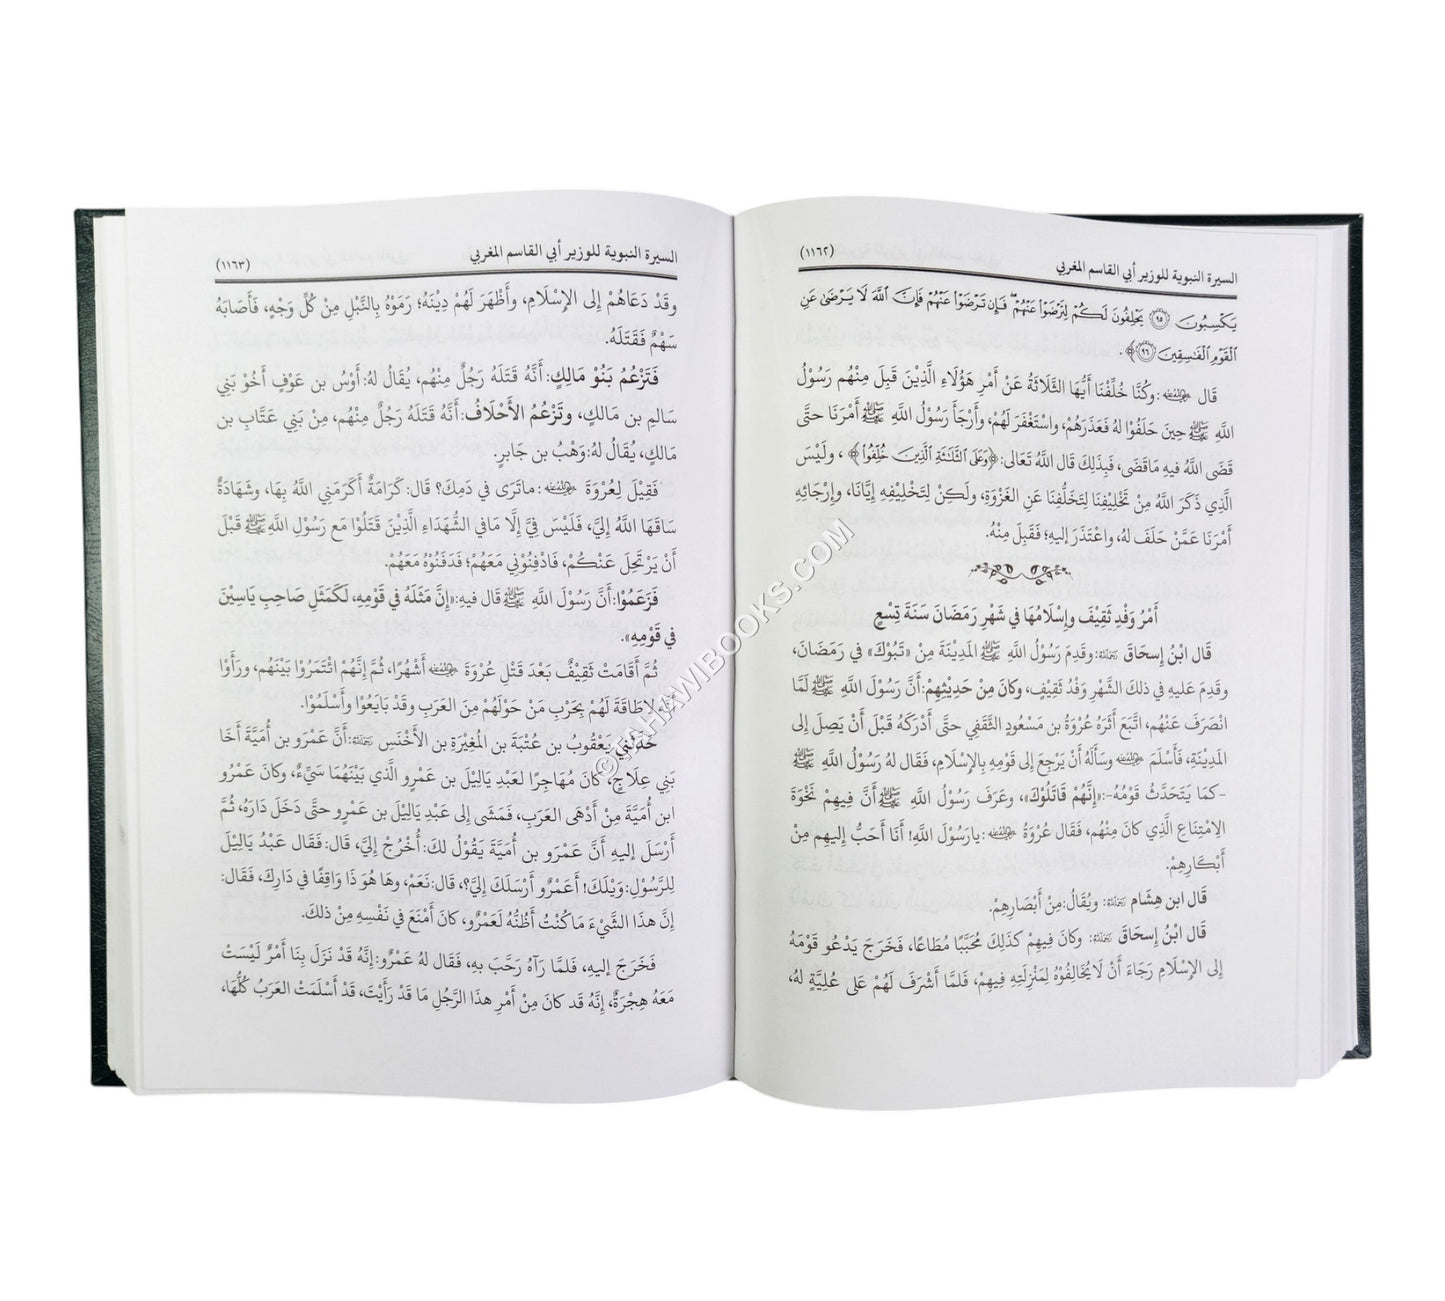 السيرة النبوية للوزير أبي القاسم المغربي (١١٦٢)
يَكْسِبُونَ ۝٩٥ يَحْلِفُونَ لَكُمْ لِتَرْضَوْا عَنْهُمْ ۖ فَإِن تَرْضَوْا عَنْهُمْ فَإِنَّ اللَّهَ لَا يَرْضَىٰ عَنِ
الْقَوْمِ الْفَاسِقِينَ ۝٩٦﴾.
قال رضي الله عنه: وكُنَّا خُلِّفْنَا أَيُّهَا الثَّلَاثَةُ عَنْ أَمْرِ هَؤُلَاءِ الَّذِيْنَ قَبِلَ مِنْهُم رَسُوْلُ
اللَّهِ ﷺ حِينَ حَلَفُوْا لهُ فَعَذَرَهُمْ، واسْتَغْفَرَ لَهُمْ، وأَرْجَأَ رَسُوْلُ اللَّهِ ﷺ أَمْرَنَا حتَّى
قَضَى اللَّهُ فيهِ مَاقَضَى، فَبِذَلِكَ قَالَ اللَّهُ تَعَالى: ﴿وَعَلَى الثَّلَاثَةِ الَّذِينَ خُلِّفُوا﴾، ولَيْسَ
الَّذِي ذَكَرَ اللَّهُ مِنْ تَخْلِيفِنَا لِتَخَلُّفِنَا عَنِ الغَزْوَةِ، ولَكِنْ لِتَخْلِيْفِهِ إِيَّانَا، وإِرْجَائِهِ
أَمْرَنَا عَمَّنْ حَلَفَ لهُ، واعْتَذَرَ إليهِ؛ فَقَبِلَ مِنْهُ.
أَمْرُ وَفْدِ ثَقِيْفَ وإِسْلَامُهَا في شَهْرِ رَمَضَانَ سَنَةَ تِسْعٍ
قال ابْنُ إسحَاقَ رحمه الله: وقَدِمَ رَسُوْلُ اللَّهِ ﷺ المَدِيْنَةَ مِنْ «تَبُوْكَ» في رَمَضَانَ،
وقَدِمَ عَليهِ في ذلكَ الشَّهْرِ وَفْدُ ثَقِيْفٍ، وكانَ مِنْ حَدِيْثِهِمْ: أَنَّ رَسُوْلَ اللَّهِ ﷺ لَمَّا
انْصَرَفَ عَنْهُم، اتَّبَعَ أَثَرَهُ عُرْوَةُ بن مَسْعُودٍ الثَّقَفي حتَّى أَدْرَكَهُ قَبْلَ أَنْ يَصِلَ إلى
المَدِيْنَةِ، فَأَسْلَمَ رضي الله عنه وسأَلَهُ أَنْ يَرْجِعَ إلى قَوْمِهِ بِالإِسْلَامِ، فَقَال لهُ رَسُوْلُ اللَّهِ ﷺ
-كمَا يَتَحَدَّثُ قَوْمُهُ-: «إِنَّهُمْ قَاتَلُوْكَ»، وعَرَفَ رَسُوْلُ اللَّهِ ﷺ أَنَّ فِيهِمْ نَخْوَةَ
الِامْتِنَاعِ الَّذِي كانَ مِنْهُم، فَقَال عُرْوَةُ رضي الله عنه: يارَسُوْلَ اللَّهِ! أَنَا أَحَبُّ إليهِم مِنْ
أَبْكَارِهِمْ.
قَال ابن هِشَام رحمه الله: ويُقَالُ: مِنْ أَبْصَارِهِمْ.
قَال ابْنُ إسحَاقَ رحمه الله: وكانَ فِيهِمْ كذَلِكَ مُحَبَّبًا مُطَاعًا، فَخَرَجَ يَدْعُو قَوْمَهُ
إلى الإِسْلَامِ رَجَاءَ أَنْ لَايُخَالِفُوْهُ لِمَنْزِلَتِهِ فِيهِمْ، فَلمَّا أَشْرَفَ لَهُمْ عَلى عُلِيَّةٍ لهُ،
السيرة النبوية للوزير أبي القاسم المغربي (١١٦٣)
وقَدْ دَعَاهُمْ إلى الإِسْلَامِ، وأَظْهَرَ لَهُمْ دِيْنَهُ؛ رَمَوْهُ بِالنَّبْلِ مِنْ كُلِّ وَجْهٍ، فَأَصَابَهُ
سَهْمٌ فَقَتَلَهُ.
فَتَزْعُمُ بَنُوْ مَالِكٍ: أَنَّهُ قَتَلَهُ رَجُلٌ مِنْهُم، يُقَالُ لهُ: أَوْسُ بن عَوْفٍ أَخُوْ بَنِي
سَالمِ بن مَالكٍ، وتَزْعُمُ الأَحْلَافُ: أَنَّهُ قَتَلَهُ رَجُلٌ مِنْهُم، مِنْ بَنِي عَتَّابِ بن
مَالكٍ، يُقَالُ لهُ: وَهْبُ بن جَابِرٍ.
فَقِيْلَ لِعُرْوَةَ رضي الله عنه: ماتَرَى في دَمِكَ؟ قَالَ: كَرَامَةٌ أَكْرَمَنِي اللَّهُ بِهَا، وشَهَادَةٌ
سَاقَهَا اللَّهُ إِليَّ، فَلَيْسَ فِيَّ إِلَّا مَافي الشُّهَدَاءِ الَّذِيْنَ قَتَلُوْا مَع رَسُوْلِ اللَّهِ ﷺ قَبْلَ
أَنْ يَرْتَحِلَ عَنْكُمْ، فَادْفِنُوْنِي مَعَهُمْ؛ فَدَفَنُوْهُ مَعَهُمْ.
فَزَعَمُوْا: أَنَّ رَسُوْلَ اللَّهِ ﷺ قال فيهِ: «إِنَّ مَثَلَهُ في قَوْمِهِ، لَكَمَثَلِ صَاحِبِ يَاسِيْنَ
في قَوْمِهِ».
ثُمَّ أَقَامَتْ ثَقِيْفٌ بَعْدَ قَتْلِ عُرْوَةَ رضي الله عنه أَشْهُرًا، ثُمَّ إِنَّهُمْ ائْتَمَرُوْا بَيْنَهُم، ورَأَوْا
أنَّهُ لاطَاقَةَ لَهُمْ بِحَرْبِ مَنْ حَوْلَهُمْ مِنَ العَرَبِ وقَدْ بَايَعُوْا وأَسْلَمُوْا.
حَدَّثَنِي يَعْقُوبُ بن عُتْبَةَ بن المُغِيْرَةِ بن الأَخْنَسِ رحمه الله: أَنَّ عَمْرَو بن أُمَيَّةَ أَخَا
بَنِي عِلَاجٍ، كانَ مُهَاجِرًا لعَبْدِ يَالِيْلَ بن عَمْرٍو الَّذي بَيْنَهُمَا سَيِّءٌ، وكانَ عَمْرُو
ابن أُمَيَّةَ مِنْ أَدْهَى العَرَبِ، فَمَشَى إلى عَبْدِ يَالِيْلَ بن عَمْرٍو حتَّى دَخَلَ دَارَهُ، ثُمَّ
أَرْسَلَ إليهِ أَنَّ عَمْرَو بن أُمَيَّةَ يَقُوْلُ لكَ: أُخْرُجْ إِليَّ، قَال: فَقَال عَبْدُ يَالِيْلَ
لِلرَّسُوْلِ: وَيْلَكَ! أَعَمْرٌو أَرْسَلَكَ إِليَّ؟، قَال: نَعَمْ، وهَا هُوَ ذَا وَاقِفًا في دَارِكَ، فَقَال:
إِنَّ هذَا الشَّيْءَ مَاكُنْتُ أَظُنُّهُ لَعَمْرٌو، كانَ أَمْنَعَ في نَفْسِهِ مِنْ ذلكَ.
فَخَرَجَ إليهِ، فَلمَّا رَآهُ رَحَّبَ بهِ، فَقَال لهُ عَمْرٌو: إِنَّهُ قَدْ نَزَلَ بِنَا أَمْرٌ لَيْسَتْ
مَعَهُ هِجْرَةٌ، إِنَّهُ قَد كانَ مِنْ أَمْرِ هذَا الرَّجُلِ مَا قَدْ رَأَيْتَ، قَدْ أَسْلَمَتْ العَرَبُ كُلُّهَا،